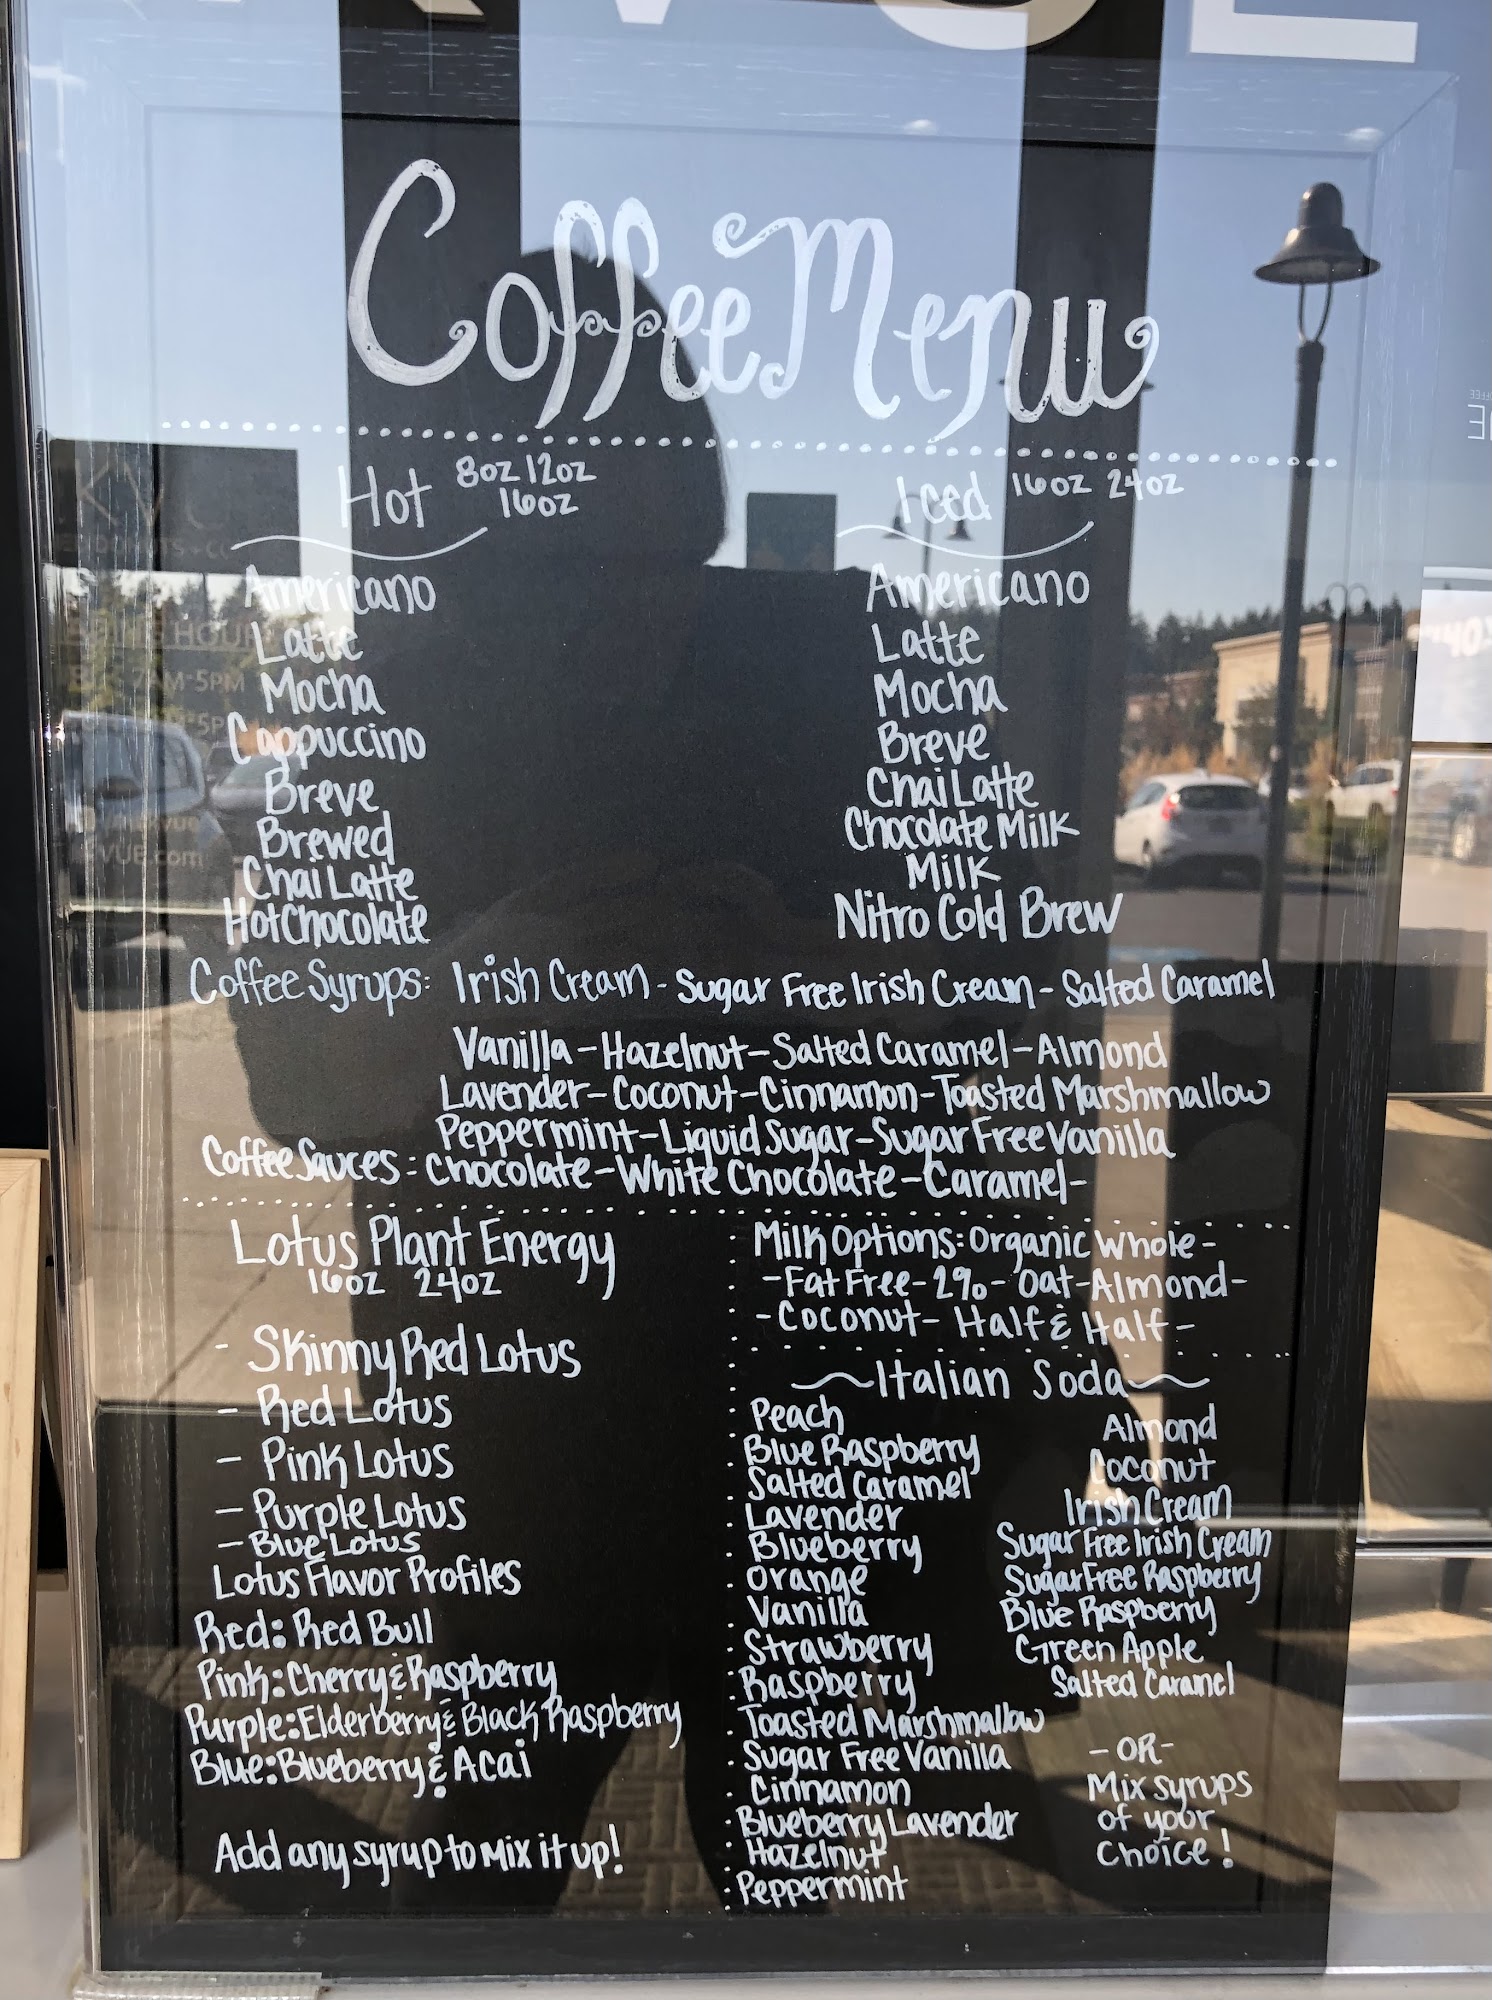 Coffee Menu
Hot 8oz 12oz
16oz
Americano
Latte
Mocha
Cappuccino
Breve
Brewed
Chai Latte
Hot Chocolate
Iced 16oz 24oz
Americano
Latte
Mocha
Breve
Chai Latte
Chocolate Milk
Milk
Nitro Cold Brew
Coffee Syrups: Irish Cream - Sugar Free Irish Cream - Salted Caramel
Vanilla - Hazelnut - Salted Caramel - Almond
Lavender - Coconut - Cinnamon - Toasted Marshmallow
Peppermint - Liquid Sugar - Sugar Free Vanilla
Coffee Sauces: Chocolate - White Chocolate - Caramel -
Lotus Plant Energy
16oz 24oz
- Skinny Red Lotus
- Red Lotus
- Pink Lotus
- Purple Lotus
- Blue Lotus
Lotus Flavor Profiles
Red: Red Bull
Pink: Cherry & Raspberry
Purple: Elderberry & Black Raspberry
Blue: Blueberry & Acai
Add any syrup to Mix it up!
Milk Options: Organic Whole -
- Fat Free - 2% - Oat - Almond -
- Coconut - Half & Half -
~Italian Soda~
Peach
Blue Raspberry
Salted Caramel
Lavender
Blueberry
Orange
Vanilla
Strawberry
Raspberry
Toasted Marshmallow
Sugar Free Vanilla
Cinnamon
Blueberry Lavender
Hazelnut
Peppermint
Almond
Coconut
Irish Cream
Sugar Free Irish Cream
Sugar Free Raspberry
Blue Raspberry
Green Apple
Salted Caramel
- OR -
Mix syrups
of your
Choice!